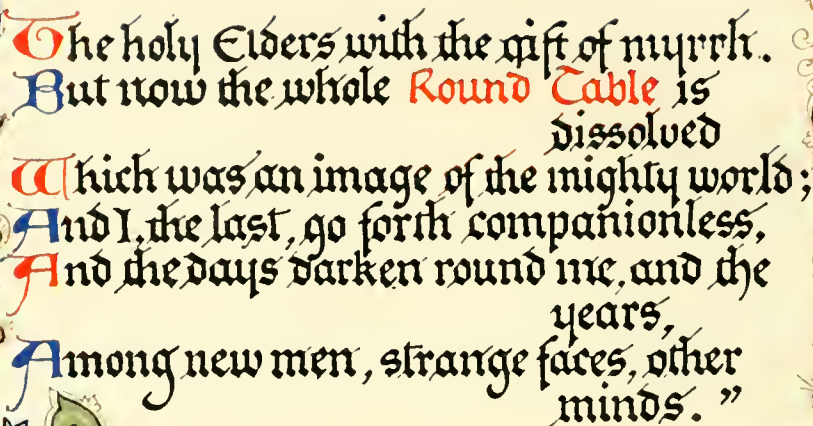 The holy Elders with the gift of myrrh.
But now the whole Round Table is
dissolved
Which was an image of the mighty world;
And I, the last, go forth companionless,
And the days darken round me, and the
years,
Among new men, strange faces, other
minds."